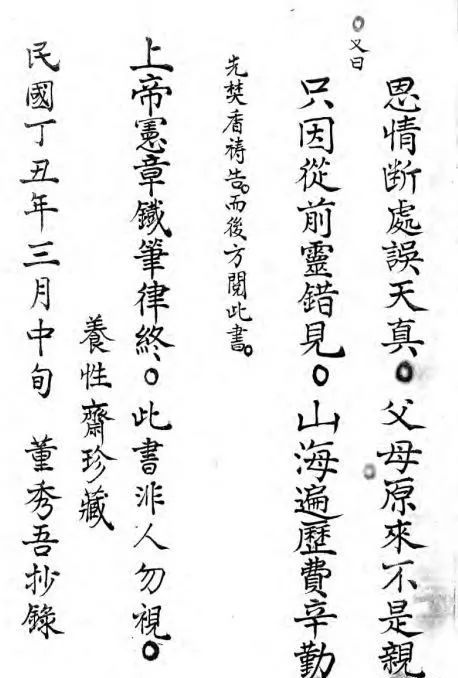 恩情断處誤天真。父母原來不是親
只因從前靈錯見。山海遍歷費辛勤
。又曰
先焚香祷告。而後方閱此書。
上帝憲章鐵筆律終。此書非人勿視。
養性齋珍藏
民國丁丑年三月中旬 董秀吾抄錄